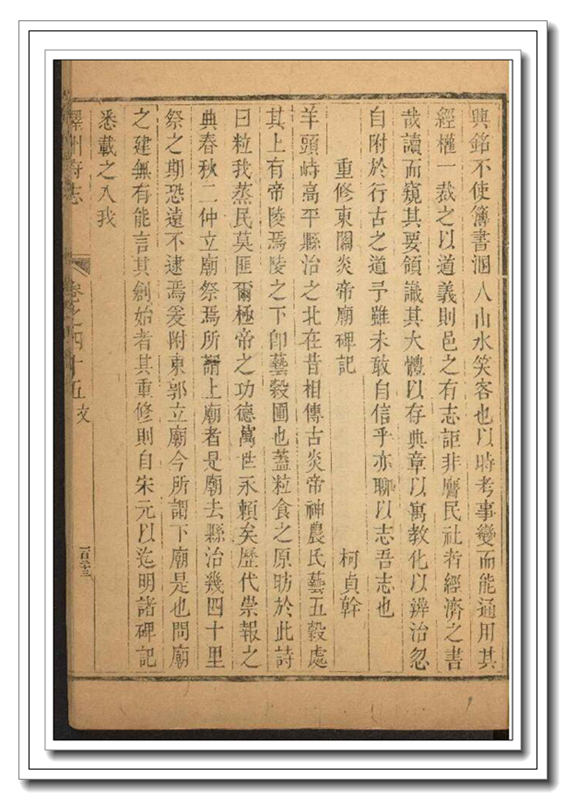 興銘不使簿書溷人山水笑客也以時考事變而能通用其
經權一裁之以道義則邑之有志詎非曆民社者經濟之書
哉讀而窺其要領識其大體以存典章以寓教化以辨治忽
自附於行古之道予雖未敢自信乎亦聊以志吾志也
重修東關炎帝廟碑記
柯貞幹
羊頭峙高平縣治之北在昔相傳古炎帝神農氏藝五穀處
其上有帝陵焉陵之下即藝穀圃也蓋粒食之原昉於此詩
曰粒我蒸民莫匪爾極帝之功德萬世永賴矣歷代崇報之
典春秋二仲立廟祭焉所謂上廟者是廟去縣治幾四十里
祭之期恐遠不逮焉爰附東郭立廟今所謂下廟是也問廟
之建無有能言其創始者其重修則自宋元以迄明諸碑記
悉載之入我
澤州府志
卷之四十五 文
一百六十三